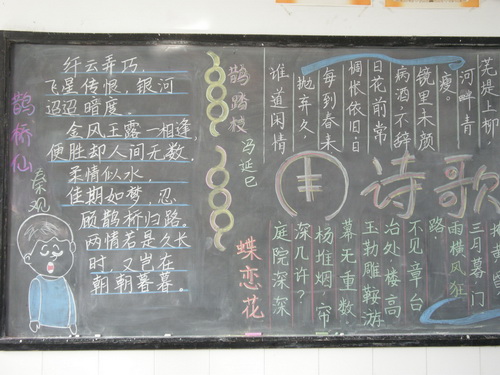 鹊桥仙
秦观
纤云弄巧,
飞星传恨,银河
迢迢暗度。
金风玉露一相逢,
便胜却人间无数。
柔情似水,
佳期如梦,忍
顾鹊桥归路。
两情若是久长
时,又岂在
朝朝暮暮。
鹊踏枝
冯延巳
谁道闲情
抛弃久,
每到春来
惆怅依旧日
日花前常
病酒,不辞
镜里朱颜
瘦。
河畔青
芜堤上柳,
诗歌
蝶恋花
庭院深深
深几许?
杨堆烟,帘
幕无重数
玉勒雕鞍游
治处,楼高
不见章台
路。
雨横风狂
三月暮门